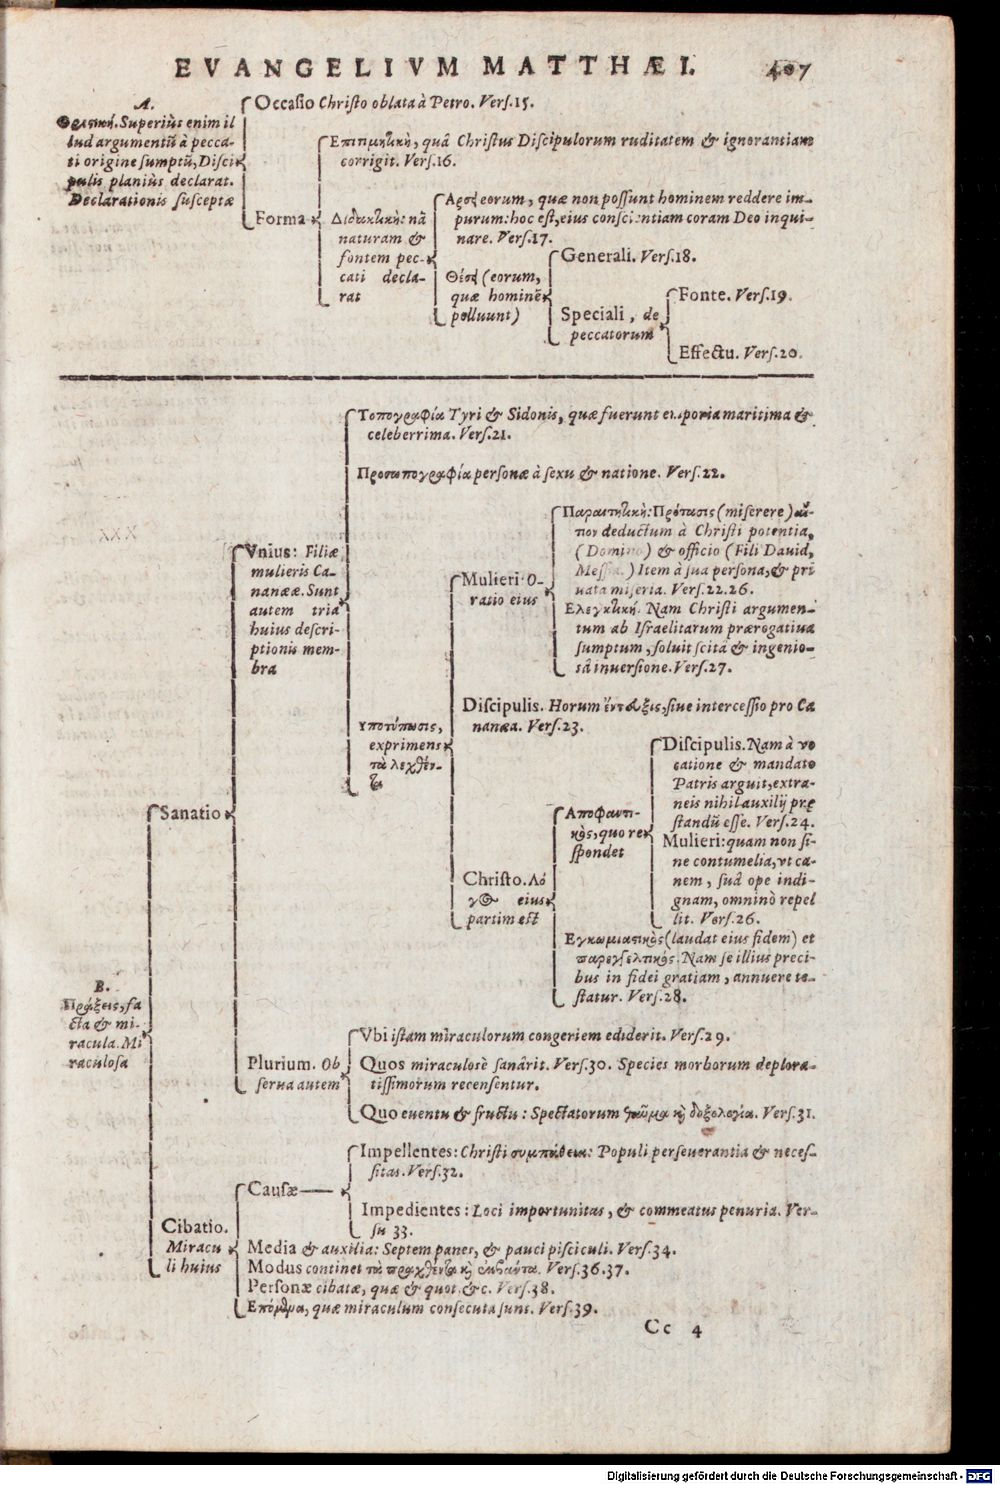 EVANGELIVM MATTHÆI. 407
A.
Θετικὴ. Superiùs enim il
lud argumentū à pecca-
ti origine sumptū, Disci
pulis planiùs declarat.
Declarationis susceptæ
Occasio Christo oblata à Petro. Vers.15.
Forma
Επιτιμητικὴ, quâ Christus Discipulorum ruditatem & ignorantiam
corrigit. Vers.16.
Διδακτικὴ: nā
naturam &
fontem pec-
cati decla-
rat
Αρσει eorum, quæ non possunt hominem reddere im-
purum: hoc est, eius conscientiam coram Deo inqui-
nare. Vers.17.
Θέσει (eorum,
quæ hominē
polluunt)
Generali. Vers.18.
Speciali, de
peccatorum
Fonte. Vers.19.
Effectu. Vers.20.
B.
Πράξεις, fa
cta & mi-
racula. Mi
raculosa
Sanatio
Vnius: Filiæ
mulieris Ca-
nanææ. Sunt
autem tria
huius descri-
ptionis mem-
bra
Τοπογραφία Tyri & Sidonis, quæ fuerunt emporia maritima &
celeberrima. Vers.21.
Προσωπογραφία personæ à sexu & natione. Vers.22.
Υποτύπωσις,
exprimens
τὰ λεχθέν-
τα
Mulieri O-
ratio eius
Παραιτητικὴ: Πρότασις (miserere) αἴ-
τιον deductum à Christi potentia,
(Domino) & officio (Fili Dauid,
Messia.) Item à sua persona, & pri
uata miseria. Vers.22.26.
Ελεγκτικὴ. Nam Christi argumen-
tum ab Israelitarum prærogatiua
sumptum, soluit scitâ & ingenio-
sâ inuersione. Vers.27.
Discipulis. Horum ἔντευξις, siue intercessio pro Ca
nanæa. Vers.23.
Christo. Λό
γος eius
partim est
Αποφαντι-
κὸς, quo re
spondet
Discipulis. Nam à vo
catione & mandato
Patris arguit, extra-
neis nihil auxilij præ
standū esse. Vers.24.
Mulieri: quam non si-
ne contumelia, vt ca-
nem, suâ ope indi-
gnam, omninò repel
lit. Vers.26.
Εγκωμιαστικὸς (laudat eius fidem) et
παρεγγελτικός. Nam se illius preci-
bus in fidei gratiam, annuere te-
statur. Vers.28.
Plurium. Ob
serua autem
Vbi istam miraculorum congeriem ediderit. Vers.29.
Quos miraculosè sanârit. Vers.30. Species morborum deplora-
tissimorum recensentur.
Quo euentu & fructu: Spectatorum θαῦμα κὴ δοξολογία. Vers.31.
Cibatio.
Miracu
li huius
Causæ
Impellentes: Christi συμπάθεια: Populi perseuerantia & neces-
sitas. Vers.32.
Impedientes: Loci importunitas, & commeatus penuria. Ver-
su 33.
Media & auxilia: Septem panes, & pauci pisciculi. Vers.34.
Modus continet τὰ πραχθέντα κὴ Vers.36.37.
Personæ cibatæ, quæ & quot, &c. Vers.38.
Επόμενα, quæ miraculum consecuta sunt. Vers.39.
Cc 4
Digitalisierung gefördert durch die Deutsche Forschungsgemeinschaft - DFG